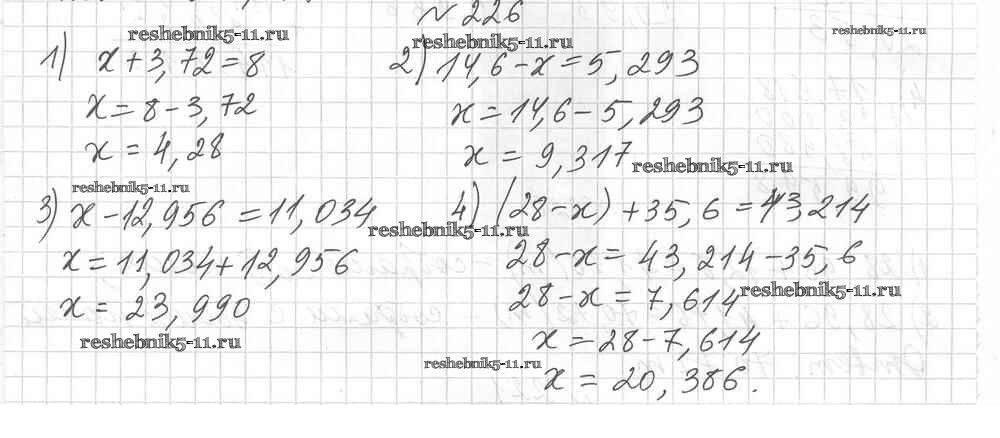 № 226
reshebnik5-11.ru
reshebnik5-11.ru
reshebnik5-11.ru
1) x + 3,72 = 8
x = 8 - 3,72
x = 4,28
2) 14,6 - x = 5,293
x = 14,6 - 5,293
x = 9,317
reshebnik5-11.ru
reshebnik5-11.ru
3) x - 12,956 = 11,034
x = 11,034 + 12,956
x = 23,990
reshebnik5-11.ru
reshebnik5-11.ru
4) (28 - x) + 35,6 = 43,214
28 - x = 43,214 - 35,6
28 - x = 7,614
reshebnik5-11.ru
x = 28 - 7,614
reshebnik5-11.ru
x = 20,386.